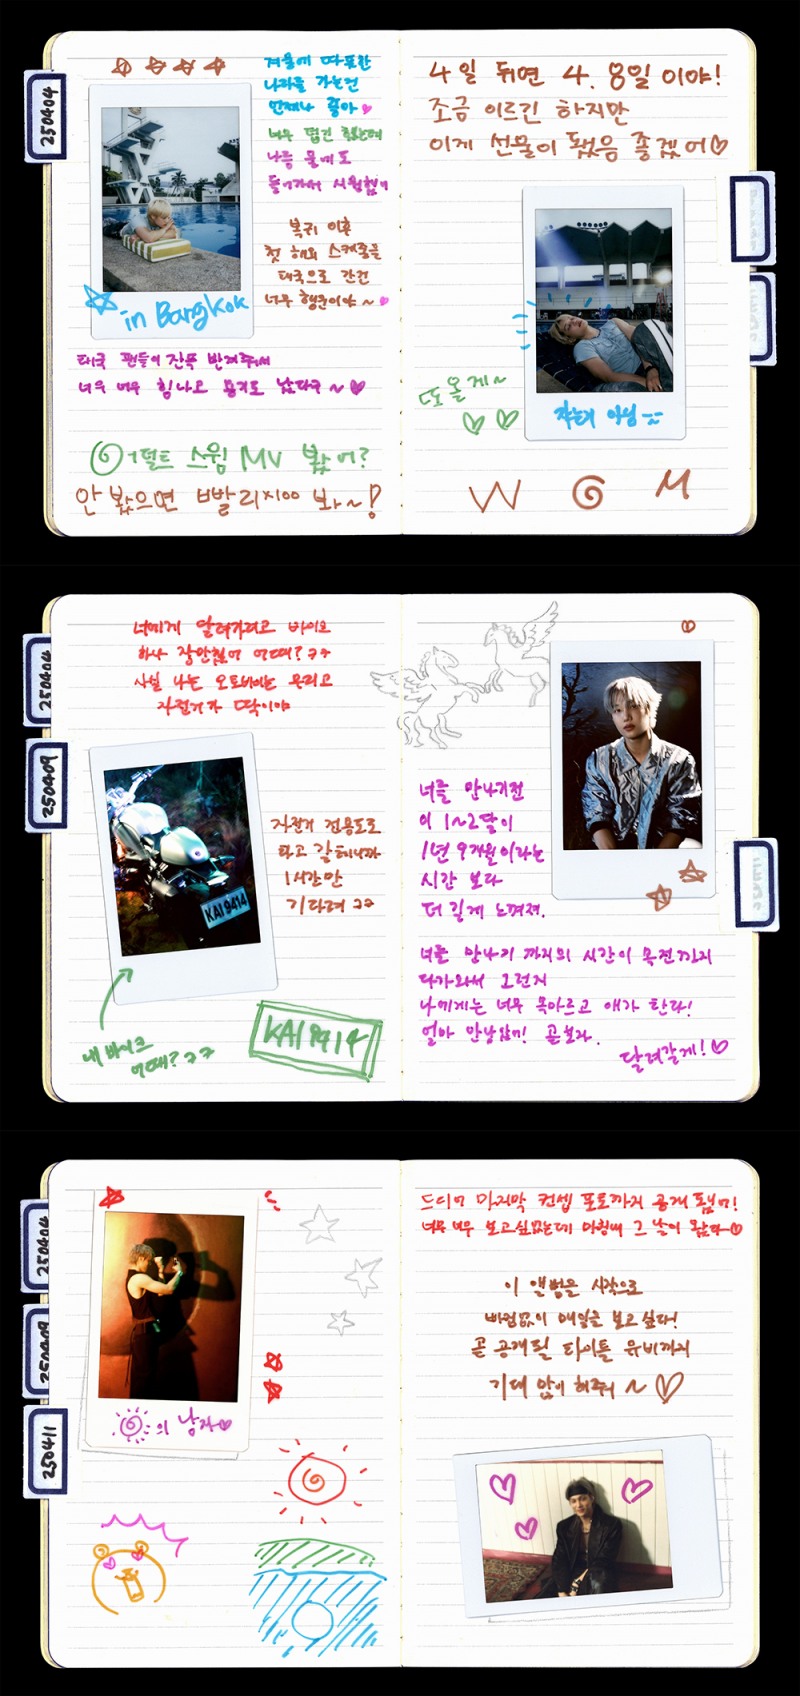 250404
겨울에 따뜻한
나라를 가는건
언제나 좋아
너무 덥긴 했는데
나름 물에도
들어가서 시원했어
복귀 이후
첫 해외 스케줄을
태국으로 간건
너무 행운이야~
in Bangkok
태국 팬들이 잔뜩 반겨주셔서
너무 너무 힘나고 용기도 났다구~
어덜트 스윔 MV 봤어?
안 봤으면 빨리 봐~!
4일 뒤면 4. 8일 이야!
조금 이르긴 하지만
이게 선물이 됐음 좋겠어
또 올게~
자는거 아님
W M
250404
250409
너에게 달려가려고 바이크
하나 장만했어 어때? ㅋㅋ
사실 나는 오토바이는 무리고
자전거가 딱이야
자전거 전용도로
타고 갈테니까
1시간만
기다려 ㅋㅋ
KAI 9414
내 바이크
어때? ㅋㅋ
KAI 9414
너를 만나기전
이 1~2달이
1년 9개월이라는
시간 보다
더 길게 느껴져.
너를 만나기 까지의 시간이 목전까지
다가와서 그런지
나에게는 너무 목아르고 애가 탄다!
얼마 안남았어! 곧보자.
달려갈게!
250404
250409
250411
의 남자
드디어 마지막 컨셉 포토까지 공개 됐어!
너무 너무 보고싶었는데 마침내 그 날이 왔다
이 앨범을 시작으로
빠짐없이 매일을 보고싶다!
곧 공개될 타이틀 뮤비까지
기대 많이 해줘~